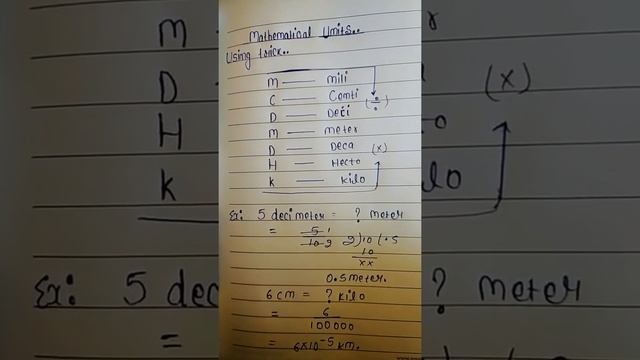 Mathematical Units..
Using trick..
M — Mili
C — Centi (÷)
D — Deci
M — Meter
D — Deca (x)
H — Hecto
K — Kilo
Ex: 5 decimeter = ? meter
= 5 1
10 2 2)10(.5
10
xx
0.5 meter.
6 cm = ? kilo
= 6
100000
= 6x10-5 km.